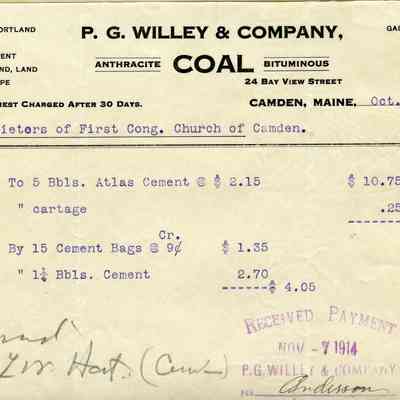 ORTLAND
P. G. WILLEY & COMPANY,
GAL
ENT
ND, LAND
PE
ANTHRACITE COAL BITUMINOUS
24 BAY VIEW STREET
REST CHARGED AFTER 30 DAYS.
CAMDEN, MAINE, Oct.
ietors of First Cong. Church of Camden.
To 5 Bbls. Atlas Cement @ $ 2.15 $ 10.75
" cartage .25
Cr.
By 15 Cement Bags @ 9¢ $ 1.35
" 1¼ Bbls. Cement 2.70
$ 4.05
RECEIVED PAYMENT
NOV -7 1914
P. G. WILLEY & COMPANY
PER Anderson